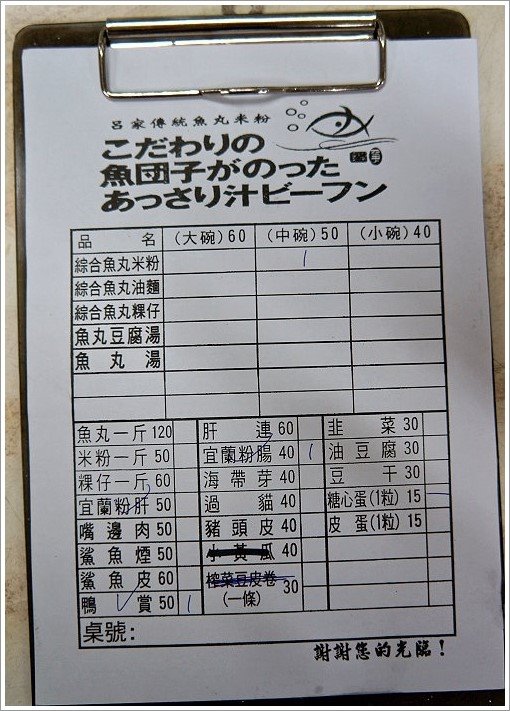 呂家傳統魚丸米粉
こだわりの
魚団子がのった
あっさり汁ビーフン
品名 (大碗)60 (中碗)50 (小碗)40
綜合魚丸米粉 1
綜合魚丸油麵
綜合魚丸粿仔
魚丸豆腐湯
魚丸湯
魚丸一斤 120 肝連 60 韭菜 30
米粉一斤 50 宜蘭粉腸 40 1 油豆腐 30
粿仔一斤 60 海帶芽 40 豆干 30
宜蘭粉肝 50 過貓 40 糖心蛋(1粒) 15
嘴邊肉 50 豬頭皮 40 皮蛋(1粒) 15
鯊魚煙 50 小黃瓜 40
鯊魚皮 60 榨菜豆皮卷(一條) 30
鴨賞 50 1
桌號:
謝謝您的光臨!